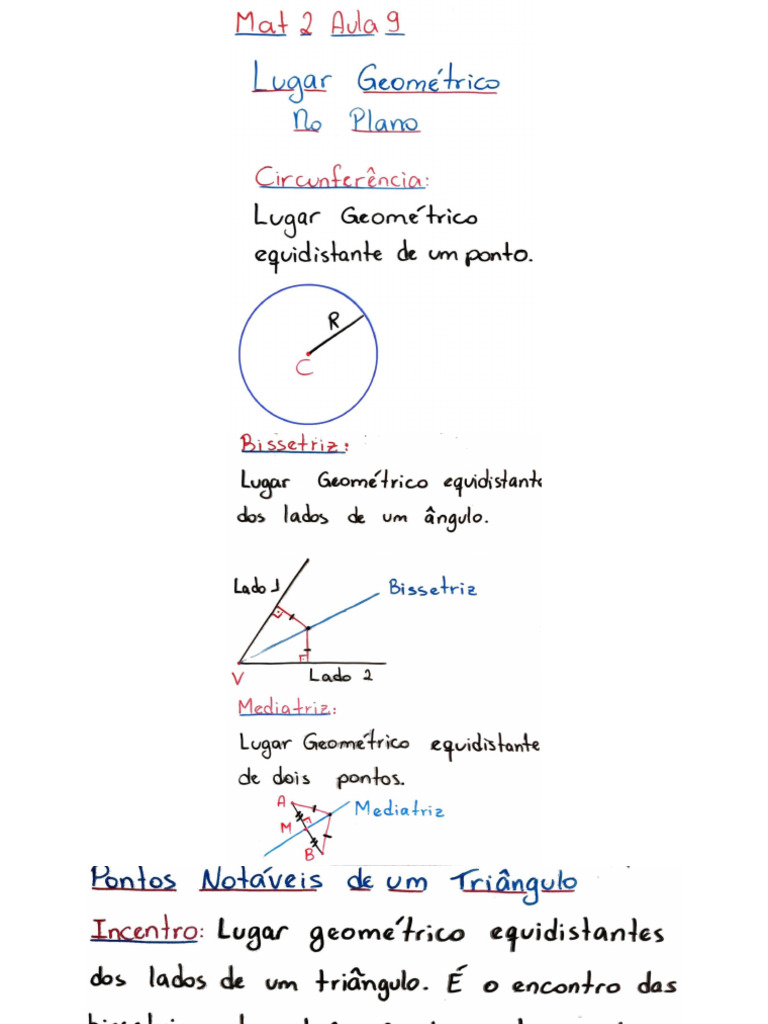 Mat 2 Aula 9
Lugar Geométrico
No Plano
Circunferência:
Lugar Geométrico
equidistante de um ponto.
R
C
Bissetriz:
Lugar Geométrico equidistante
dos lados de um ângulo.
Lado 1
Bissetriz
V
Lado 2
Mediatriz:
Lugar Geométrico equidistante
de dois pontos.
A
Mediatriz
M
B
Pontos Notáveis de um Triângulo
Incentro: Lugar geométrico equidistantes
dos lados de um triângulo. É o encontro das